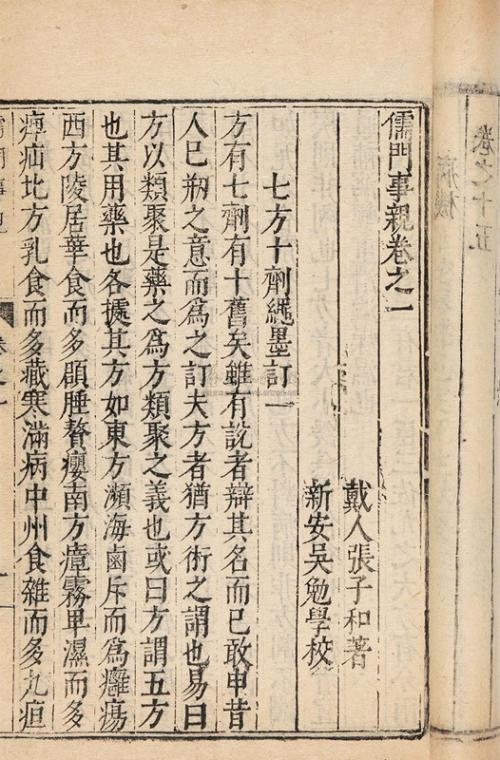 卷之十五
病機
儒門事親卷之一
戴人張子和著
新安吳勉學校
七方十劑繩墨訂一
方有七劑有十舊矣雖有說者辯其名而已敢申昔
人已剏之意而爲之訂夫方者猶方術之謂也易曰
方以類聚是藥之爲方類聚之義也或曰方謂五方
也其用藥也各據其方如東方瀕海鹵斥而爲癰瘍
西方陵居華食而多頵腄贅癭南方瘴霧卑濕而多
痺疝北方乳食而多藏寒滿病中州食雜而多九疸